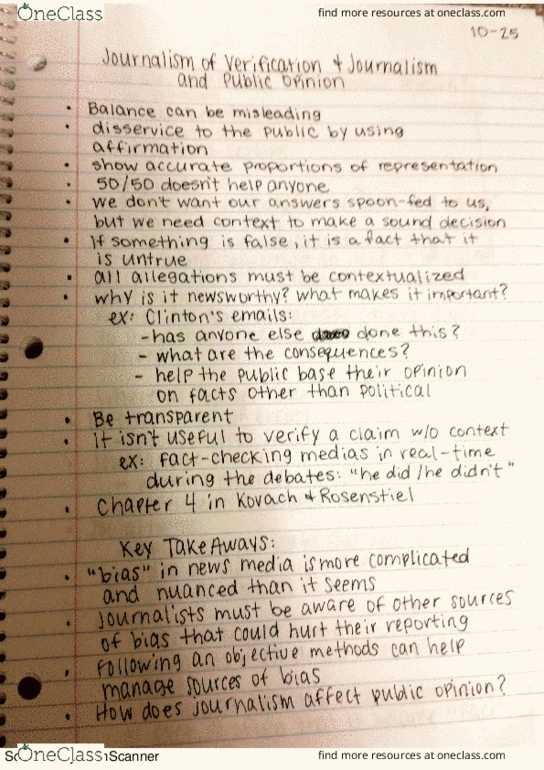 OneClass
find more resources at oneclass.com
10-25
Journalism of Verification & Journalism
and Public Opinion
• Balance can be misleading
• disservice to the public by using
affirmation
• show accurate proportions of representation
• 50/50 doesn't help anyone
• we don't want our answers spoon-fed to us,
but we need context to make a sound decision
• If something is false, it is a fact that it
is untrue
• all allegations must be contextualized
• why is it newsworthy? what makes it important?
ex: Clinton's emails:
- has anyone else done this?
- what are the consequences?
- help the public base their opinion
on facts other than political
• Be transparent
• it isn't useful to verify a claim w/o context
ex: fact-checking medias in real-time
during the debates: "he did/he didn't"
• Chapter 4 in Kovach & Rosenstiel
Key TakeAways:
• "bias" in news media is more complicated
and nuanced than it seems
• Journalists must be aware of other sources
of bias that could hurt their reporting
• following an objective methods can help
manage sources of bias
• How does journalism affect public opinion?
OneClass
Scanner
find more resources at oneclass.com